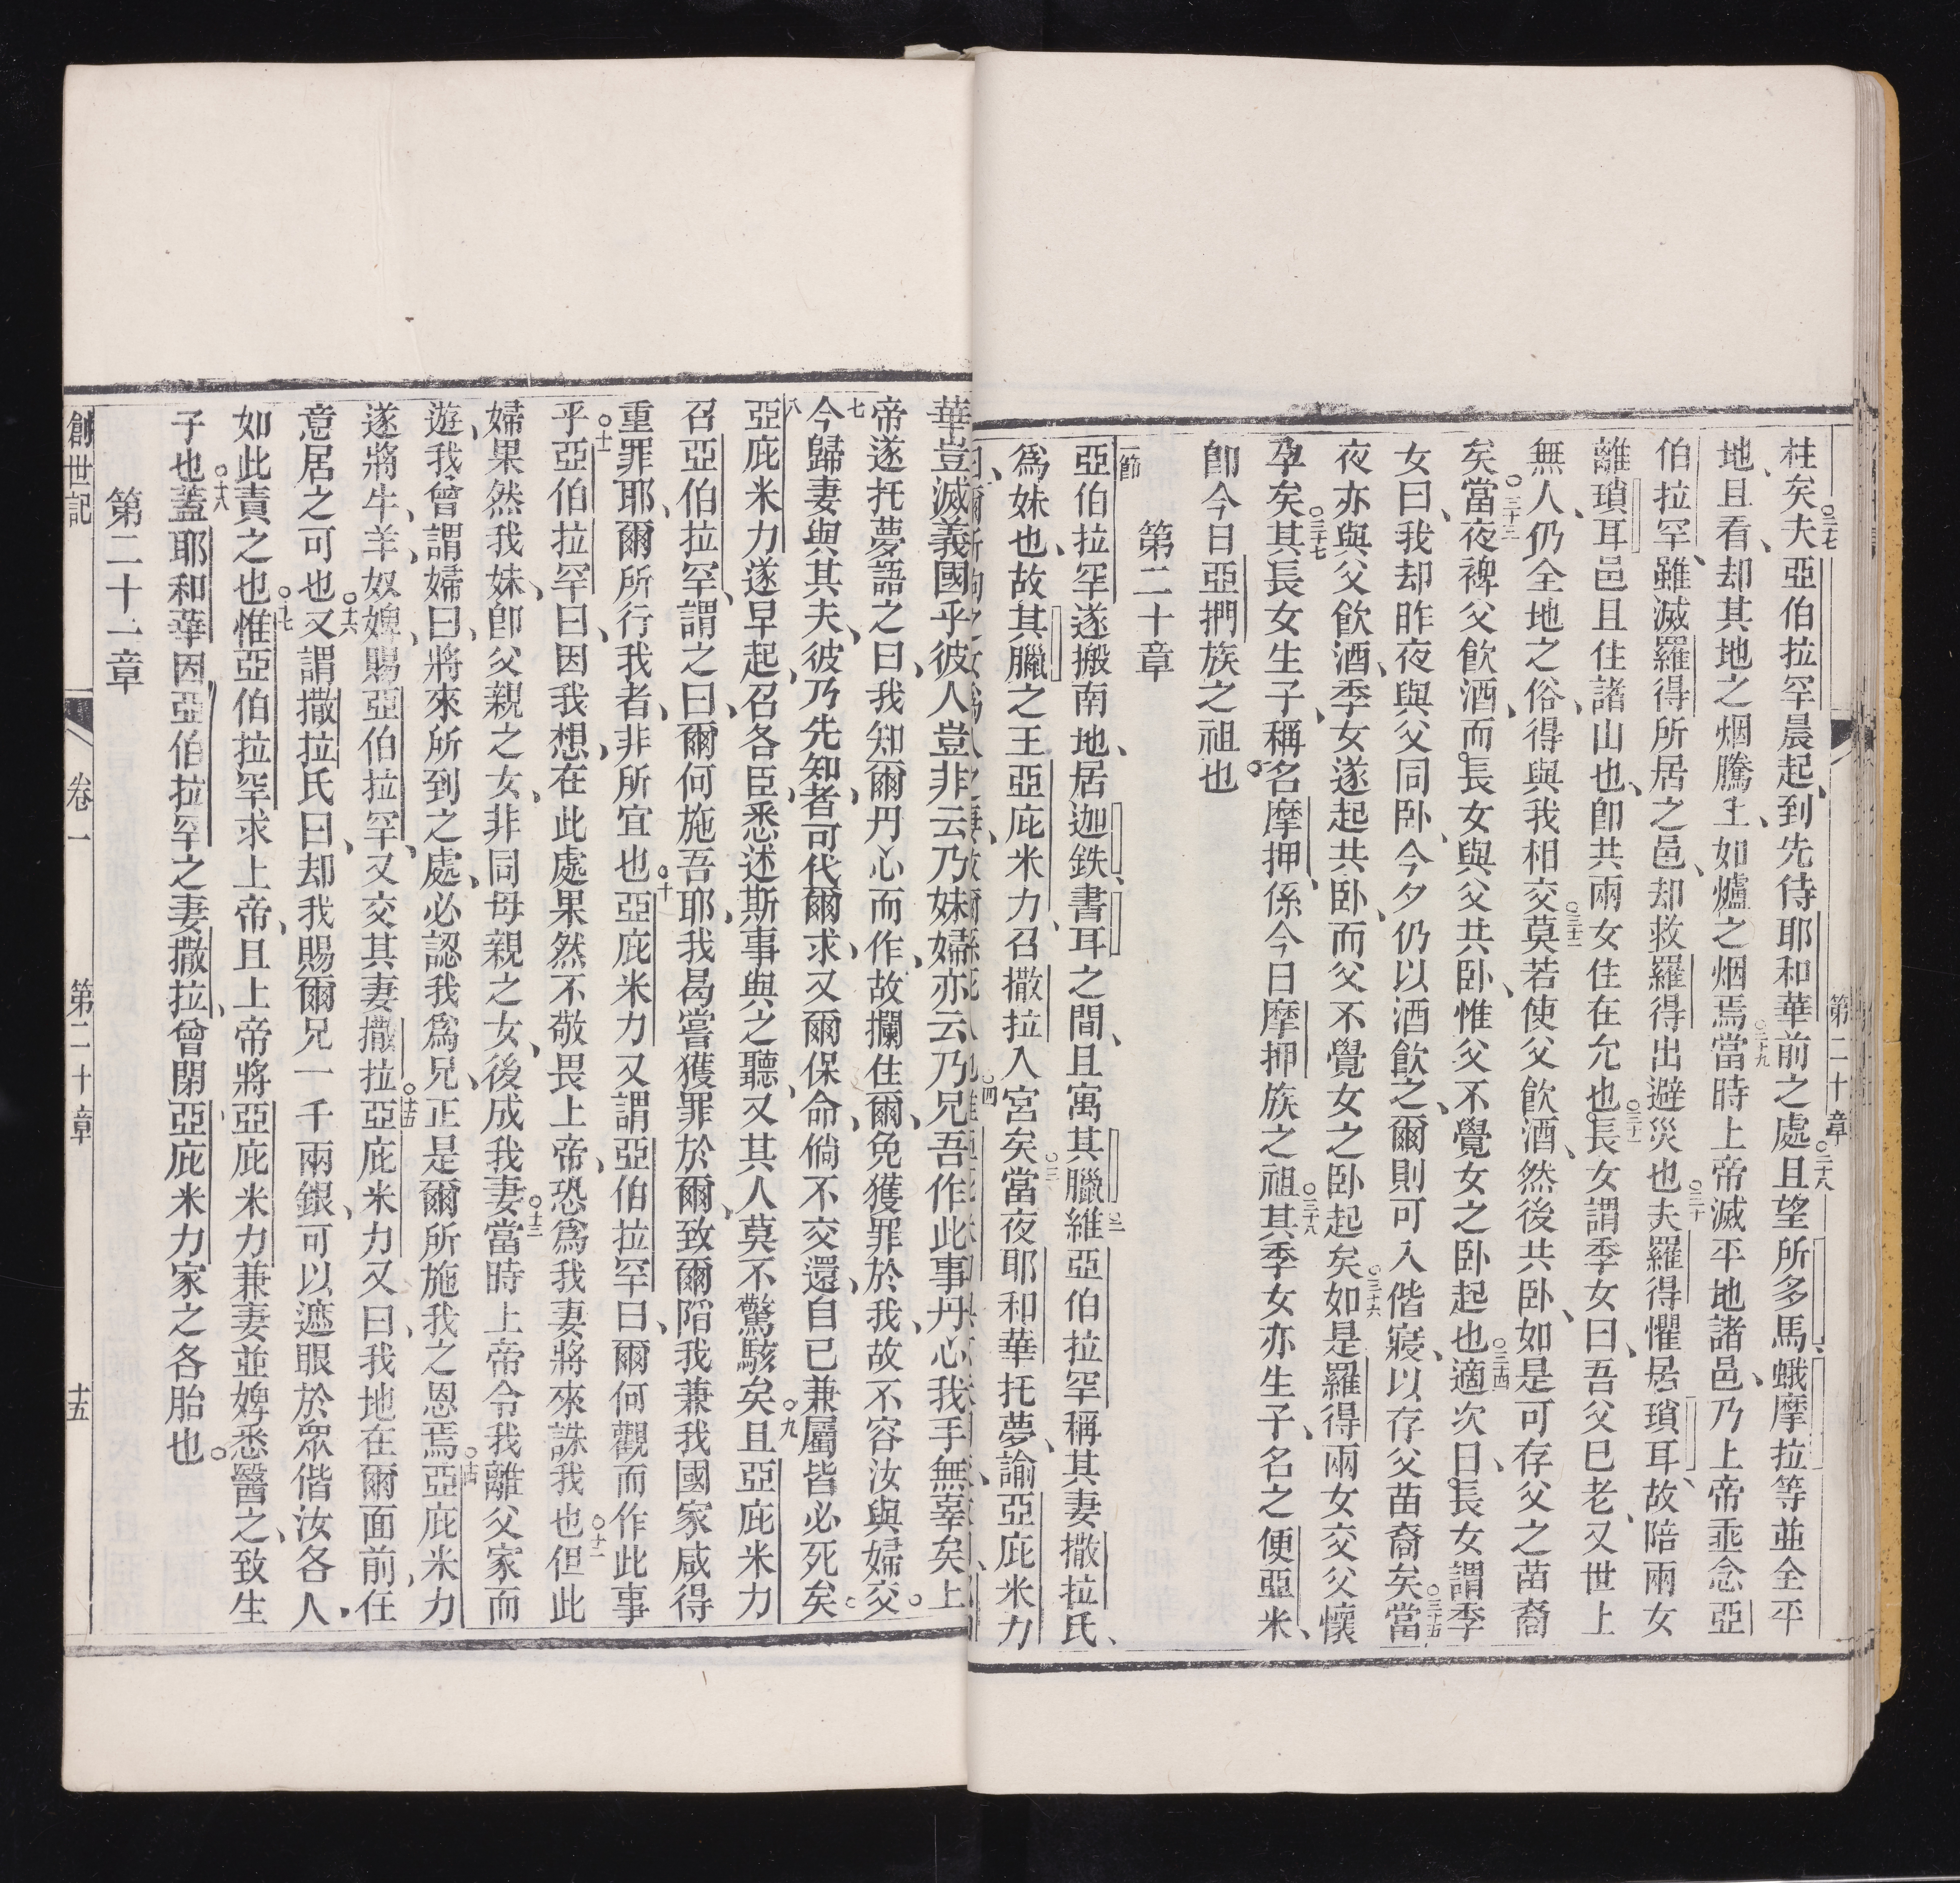 第二十章
柱矣夫○二十七亞伯拉罕晨起、到先待耶和華前之處○二十八且望所多馬、蛾摩拉等並全平
地、且看、却其地之烟騰上、如爐之烟焉○二十九當時上帝滅平地諸邑、乃上帝乖念亞
伯拉罕、雖滅羅得所居之邑、却救羅得出避災也○三十夫羅得懼居瑣耳、故陪兩女
離瑣耳邑且住諸山也、即共兩女住在穴也○三十一長女謂季女曰、吾父已老、又世上
無人、仍全地之俗、得與我相交○三十二莫若使父飲酒、然後共卧、如是可存父之苗裔
矣○三十三當夜裨父飲酒、而長女與父共卧、惟父不覺女之卧起也○三十四適次日、長女謂季
女曰、我却昨夜與父同卧、今夕仍以酒飲之、爾則可入偕寢、以存父苗裔矣○三十五當
夜亦與父飲酒、季女遂起共卧、而父不覺女之卧起矣○三十六如是羅得兩女交父懷
孕矣○三十七其長女生子、稱名摩押、係今日摩押族之祖○三十八其季女亦生子、名之便亞米、
即今日亞捫族之祖也。
第二十章
一節亞伯拉罕遂搬南地、居迦鉄、書耳之間、且寓其臘○二維亞伯拉罕稱其妻撒拉氏、
爲妹也、故其臘之王亞庇米力、召撒拉入宮矣○三當夜耶和華托夢、諭亞庇米力
華豈滅義國乎彼人豈非云乃妹婦亦云乃兄吾作此事丹心我手無辜矣上
帝遂托夢語之曰、我知爾丹心而作、故攔住爾、免獲罪於我、故不容汝與婦交。
七今歸妻與其夫、彼乃先知者、可代爾求、又爾保命、倘不交還、自已兼屬皆必死矣。
八亞庇米力遂早起、召各臣、悉述斯事與之聽、又其人莫不驚駭矣○九且亞庇米力
召亞伯拉罕、謂之曰、爾何施吾耶、我曷嘗獲罪於爾、致爾陷我兼我國家咸得
重罪耶、爾所行我者、非所宜也○十亞庇米力又謂亞伯拉罕曰、爾何觀而作此事
乎○十一亞伯拉罕曰、因我想、在此處果然不敬畏上帝、恐爲我妻將來誅我也○十二但此
婦果然我妹、即父親之女、非同母親之女、後成我妻○十三當時上帝令我離父家而
遊、我曾謂婦曰、將來所到之處、必認我爲兄、正是爾所施我之恩焉○十四亞庇米力
遂將牛、羊、奴婢、賜亞伯拉罕、又交其妻撒拉○十五亞庇米力又曰、我地在爾面前、任
意居之可也○十六又謂撒拉氏曰、却我賜爾兄一千兩銀、可以遮眼於眾偕汝各人、
如此責之也○十七惟亞伯拉罕求上帝、且上帝將亞庇米力兼妻並婢悉醫之、致生
子也○十八蓋耶和華因亞伯拉罕之妻撒拉、曾閉亞庇米力家之各胎也。
第二十一章
創世記 卷一 第二十章 十五